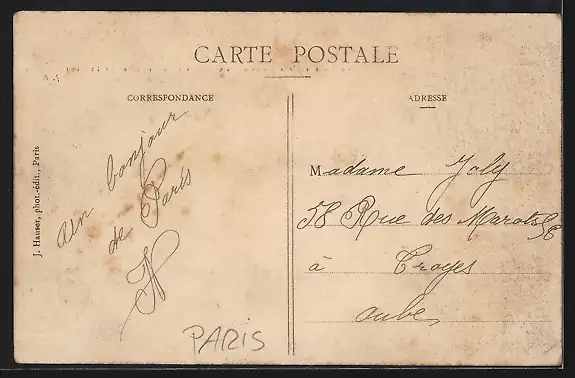 CARTE POSTALE
CORRESPONDANCE
ADRESSE
J. Hauser, phot.-édit., Paris
un bonjour
de Paris
PARIS
Madame Joly
58 Rue des Marots 58
à Troyes
Aube